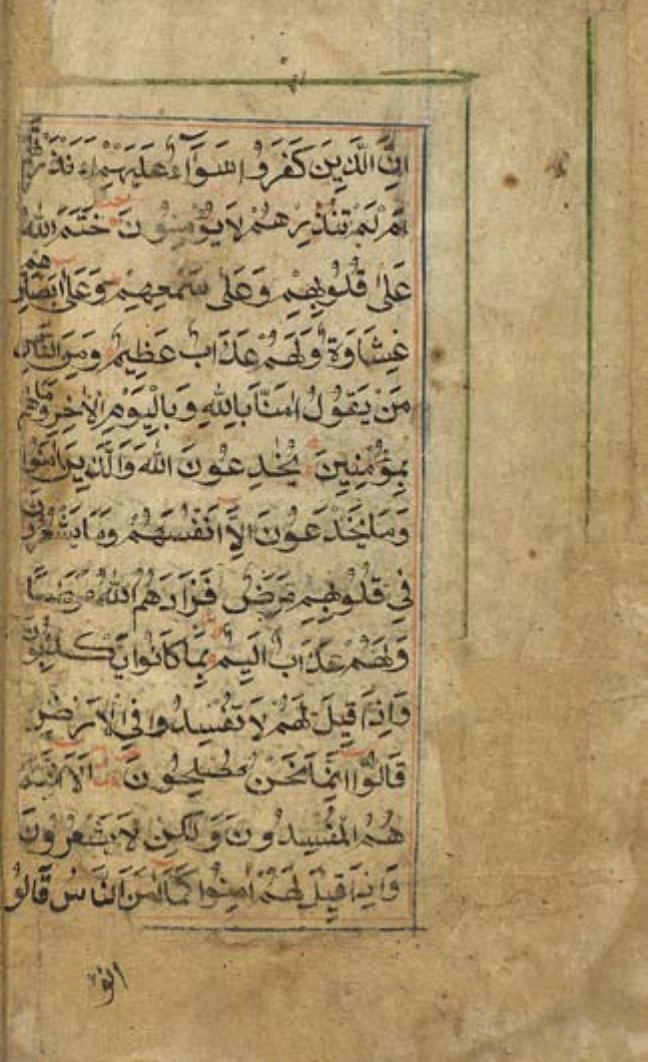 اِنَّ الَّذِيْنَ كَفَرُوْا سَوَآءٌ عَلَيْهِمْ ءَاَنْذَرْتَهُمْ
اَمْ لَمْ تُنْذِرْهُمْ لَا يُؤْمِنُوْنَ خَتَمَ اللّٰهُ
عَلٰى قُلُوْبِهِمْ وَعَلٰى سَمْعِهِمْ وَعَلٰى اَبْصَارِهِمْ
غِشَاوَةٌ وَلَهُمْ عَذَابٌ عَظِيْمٌ وَمِنَ النَّاسِ
مَنْ يَقُوْلُ اٰمَنَّا بِاللّٰهِ وَبِالْيَوْمِ الْاٰخِرِ وَمَا هُمْ
بِمُؤْمِنِيْنَ يُخٰدِعُوْنَ اللّٰهَ وَالَّذِيْنَ اٰمَنُوْا
وَمَا يَخْدَعُوْنَ اِلَّا اَنْفُسَهُمْ وَمَا يَشْعُرُوْنَ
فِيْ قُلُوْبِهِمْ مَرَضٌ فَزَادَهُمُ اللّٰهُ مَرَضًا
وَلَهُمْ عَذَابٌ اَلِيْمٌ بِمَا كَانُوْا يَكْذِبُوْنَ
وَاِذَا قِيْلَ لَهُمْ لَا تُفْسِدُوْا فِي الْاَرْضِ
قَالُوْا اِنَّمَا نَحْنُ مُصْلِحُوْنَ اَلَا اِنَّهُمْ
هُمُ الْمُفْسِدُوْنَ وَلٰكِنْ لَا يَشْعُرُوْنَ
وَاِذَا قِيْلَ لَهُمْ اٰمِنُوْا كَمَا اٰمَنَ النَّاسُ قَالُوْا